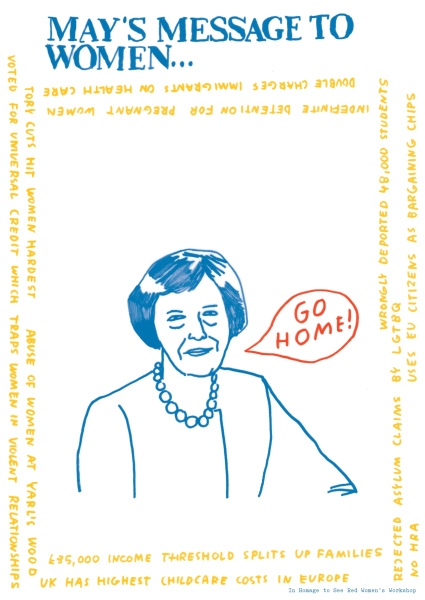 MAY'S MESSAGE TO
WOMEN...
DOUBLE CHARGES IMMIGRANTS ON HEALTH CARE
INDEFINITE DETENTION FOR PREGNANT WOMEN
VOTED FOR UNIVERSAL CREDIT WHICH TRAPS WOMEN IN VIOLENT RELATIONSHIPS
TORY CUTS HIT WOMEN HARDEST ABUSE OF WOMEN AT YARL'S WOOD
GO
HOME!
REJECTED ASYLUM CLAIMS BY LGTBQ WRONGLY DEPORTED 48,000 STUDENTS
NO HRA USES EU CITIZENS AS BARGAINING CHIPS
£35,000 INCOME THRESHOLD SPLITS UP FAMILIES
UK HAS HIGHEST CHILDCARE COSTS IN EUROPE
In Homage to See Red Women's Workshop